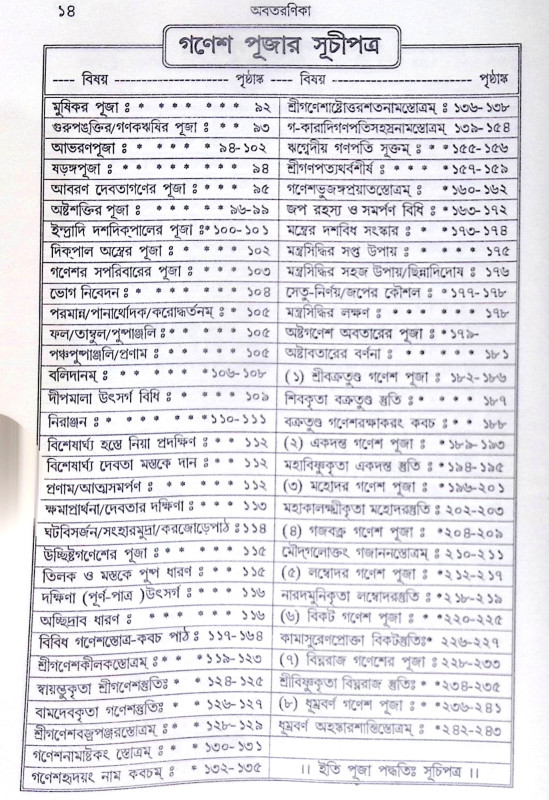 ১৪
অবতরণিকা
গণেশ পূজার সূচীপত্র
---- বিষয় -------------------- পৃষ্ঠাঙ্ক ---- বিষয় -------------------- পৃষ্ঠাঙ্ক
মুষিকর পূজা ঃ * * * * * * ৯২
গুরুপঙক্তির/গণকঋষির পূজা ঃ * * ৯৩
আভরণপূজা ঃ * * * * ৯৪-১০২
ষড়ঙ্গপূজা ঃ * * * * * * ৯৪
আবরণ দেবতাগণের পূজা ঃ * * * ৯৫
অষ্টশক্তির পূজা ঃ * * * * ৯৬-৯৯
ইন্দ্রাদি দশদিকপালের পূজা ঃ* ১০০-১০১
দিকপাল অস্ত্রের পূজা ঃ * * * ১০২
গণেশর সপরিবারের পূজা ঃ * * ১০৩
ভোগ নিবেদন ঃ * * * * * ১০৪
পরমান্ন/পানার্থোদক/করোদ্ধর্তনম্ ঃ * ১০৫
ফল/তাম্বুল/পুষ্পাঞ্জলি ঃ * * * ১০৫
পঞ্চপুষ্পাঞ্জলি/প্রণাম ঃ * * * ১০৫
বলিদানম্ ঃ * * * * *১০৬-১০৮
দীপমালা উৎসর্গ বিধি ঃ * * * ১০৯
নিরাঞ্জন ঃ * * * * *১১০-১১১
বিশেষার্ঘ্য হস্তে নিয়া প্রদক্ষিণ ঃ * * ১১২
বিশেষার্ঘ্য দেবতা মস্তকে দান ঃ * * ১১২
প্রণাম/আত্মসমর্পণ ঃ * * * * ১১২
ক্ষমাপ্রার্থনা/দেবতার দক্ষিণা ঃ * * ১১৩
ঘটবিসর্জন/সংহারমুদ্রা/করজোড়েপাঠ ঃ ১১৪
উচ্ছিষ্টগণেশের পূজা ঃ * * * * ১১৫
তিলক ও মস্তকে পুষ্প ধারণ ঃ * * ১১৫
দক্ষিণা (পূর্ণ-পাত্র )উৎসর্গ ঃ * * ১১৬
অচ্ছিদ্রাব ধারণ ঃ * * * * * ১১৬
বিবিধ গণেশস্তোত্র-কবচ পাঠ ঃ ১১৭-১৬৪
শ্রীগণেশকীলকস্তোত্রম্ ঃ * * *১১৯-১২৩
স্বায়ম্ভুকৃতা শ্রীগণেশস্তুতিঃ * * ১২৪-১২৫
বামদেবকৃতা গণেশস্তুতিঃ * * ১২৬-১২৭
শ্রীগণেশবজ্রপঞ্জরস্তোত্রম্ ঃ * * ১২৮-১২৯
গণেশনামাষ্টকং স্তোত্রম্ ঃ * * ১৩০-১৩১
গণেশহৃদয়ং নাম কবচম্ ঃ * * ১৩২-১৩৫
শ্রীগণেশাষ্টোত্তরশতনামস্তোত্রম্ ঃ ১৩৬-১৩৮
গ-কারাদিগণপতিসহস্রনামস্তোত্রম্ ১৩৯-১৫৪
ঋগ্বেদীয় গণপতি সূক্তম্ ঃ * * ১৫৫-১৫৬
শ্রীগণপত্যথর্বশীর্ষ ঃ * * * ১৫৭-১৫৯
গণেশভুজঙ্গপ্রয়াতস্তোত্রম্ ঃ *১৬০-১৬২
জপ রহস্য ও সমর্পণ বিধি ঃ *১৬৩-১৭২
মন্ত্রের দশবিধ সংস্কার ঃ * *১৭৩-১৭৪
মন্ত্রসিদ্ধির সপ্ত উপায় ঃ * * * * ১৭৫
মন্ত্রসিদ্ধির সহজ উপায়/ছিন্নাদিদোষ ঃ ১৭৬
সেতু-নির্ণয়/জপের কৌশল ঃ *১৭৭-১৭৮
মন্ত্রসিদ্ধির লক্ষণ ঃ * * * * ১৭৮
অষ্টগণেশ অবতারের পূজা ঃ *১৭৯-
অষ্টাবতারের বর্ণনা ঃ * * * * * ১৮১
(১) শ্রীবক্রতুণ্ড গণেশ পূজা ঃ ১৮২-১৮৬
শিবকৃতা বক্রতুণ্ড স্তুতি ঃ * * * ১৮৭
বক্রতুণ্ড গণেশরক্ষাকরং কবচ ঃ * * ১৮৮
(২) একদন্ত গণেশ পূজা ঃ *১৮৯-১৯৩
মহাবিষ্ণুকৃতা একদন্ত স্তুতি ঃ *১৯৪-১৯৫
(৩) মহোদর গণেশ পূজা ঃ *১৯৬-২০১
মহাকালক্ষ্মীকৃতা মহোদরস্তুতি ঃ ২০২-২০৩
(৪) গজবক্ত্র গণেশ পূজা ঃ *২০৪-২০৯
মৌদ্গলোক্তং গজাননস্তোত্রম্ ঃ ২১০-২১১
(৫) লম্বোদর গণেশ পূজা ঃ *২১২-২১৭
নারদমুনিকৃতা লম্বোদরস্তুতি ঃ *২১৮-২১৯
(৬) বিকট গণেশ পূজা ঃ *২২০-২২৫
কামাসুরেণপ্রোক্তা বিকটস্তুতিঃ* ২২৬-২২৭
(৭) বিঘ্নরাজ গণেশের পূজা ঃ ২২৮-২৩৩
শ্রীবিষ্ণুকৃতা বিঘ্নরাজ স্তুতিঃ *২৩৪-২৩৫
(৮) ধূম্রবর্ণ গণেশ পূজা ঃ *২৩৬-২৪১
ধূম্রবর্ণ অহঙ্কারশান্তিস্তোত্রম্ ঃ *২৪২-২৪৩
।। ইতি পূজা পদ্ধতিঃ সূচিপত্র ।।